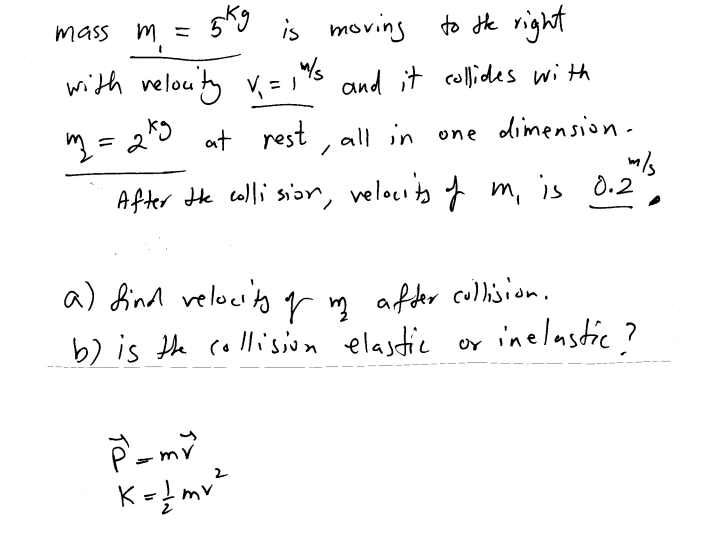 mass m₁ = 5 kg is moving to the right
with velocity v₁ = 1 m/s and it collides with
m₂ = 2 kg at rest, all in one dimension.
After the collision, velocity of m₁ is 0.2 m/s.
a) find velocity of m₂ after collision.
b) is the collision elastic or inelastic?
P⃗ = mv⃗
K = ½ mv²